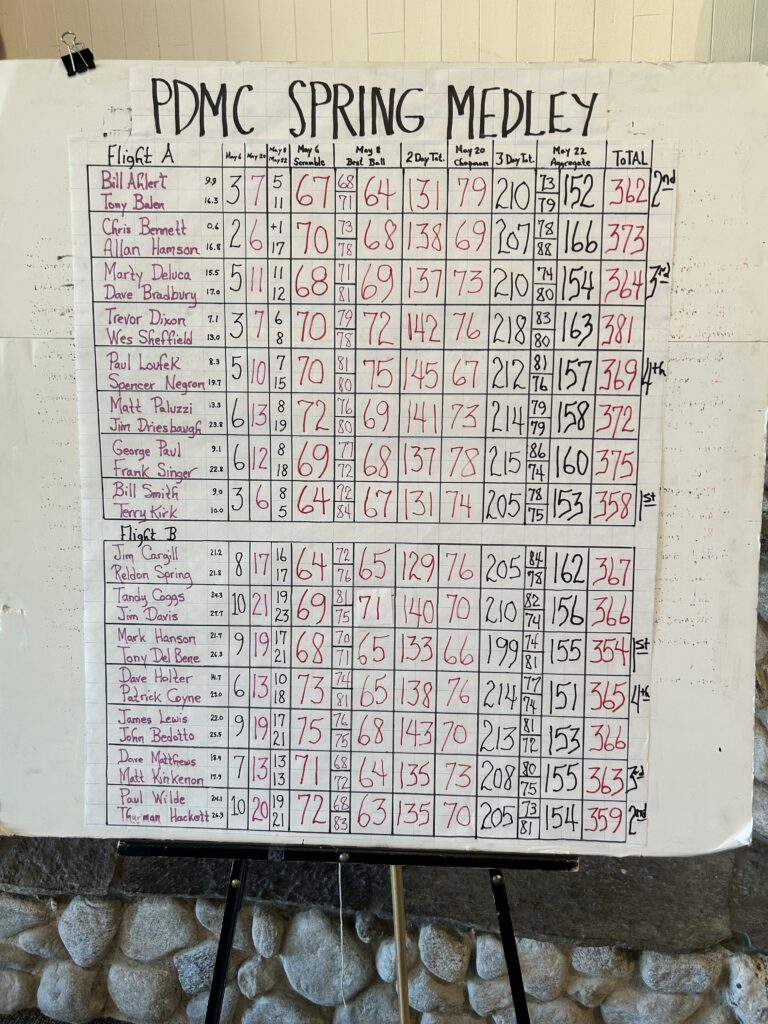 PDMC SPRING MEDLEY
Flight A May 6 May 20 May 8 May 22 May 6 Scramble May 8 Best Ball 2 Day Tot. May 20 Chapman 3 Day Tot. May 22 Aggregate ToTAL
Bill Ahlert 9.9 3 7 5 67 68 64 131 79 210 73 152 362 2nd
Tony Balen 16.3 11 71 79
Chris Bennett 0.6 2 6 +1 70 73 68 138 69 207 78 166 373
Allan Hamson 16.8 17 78 88
Marty Deluca 15.5 5 11 11 68 71 69 137 73 210 74 154 364 3rd
Dave Bradbury 17.0 12 81 80
Trevor Dixon 7.1 3 7 6 70 79 72 142 76 218 83 163 381
Wes Sheffield 13.0 8 78 80
Paul Loufek 8.3 5 10 7 70 81 75 145 67 212 81 157 369 4th
Spencer Negron 19.7 15 80 76
Matt Paluzzi 13.3 6 13 8 72 76 69 141 73 214 79 158 372
Jim Driesbaugh 23.8 19 80 79
George Paul 9.1 6 12 8 69 77 68 137 78 215 86 160 375
Frank Singer 22.8 18 72 74
Bill Smith 9.0 3 6 8 64 72 67 131 74 205 78 153 358 1st
Terry Kirk 10.0 5 84 75
Flight B
Jim Cargill 21.2 8 17 16 64 72 65 129 76 205 84 162 367
Reldon Spring 21.8 17 76 78
Tandy Coggs 24.3 10 21 19 69 81 71 140 70 210 82 156 366
Jim Davis 27.7 23 75 74
Mark Hanson 21.7 9 19 17 68 70 65 133 66 199 74 155 354 1st
Tony Del Bene 26.3 21 71 81
Dave Holter 14.7 6 13 10 73 74 65 138 76 214 77 151 365 4th
Patrick Coyne 23.0 18 81 74
James Lewis 22.0 9 19 17 75 76 68 143 70 213 81 153 366
John Bedotto 25.5 21 75 72
Dave Matthews 18.4 7 13 13 71 68 64 135 73 208 80 155 363 3rd
Matt Kinkenon 17.9 13 72 75
Paul Wilde 24.1 10 20 19 72 68 63 135 70 205 73 154 359 2nd
Thurman Hackett 26.3 21 83 81